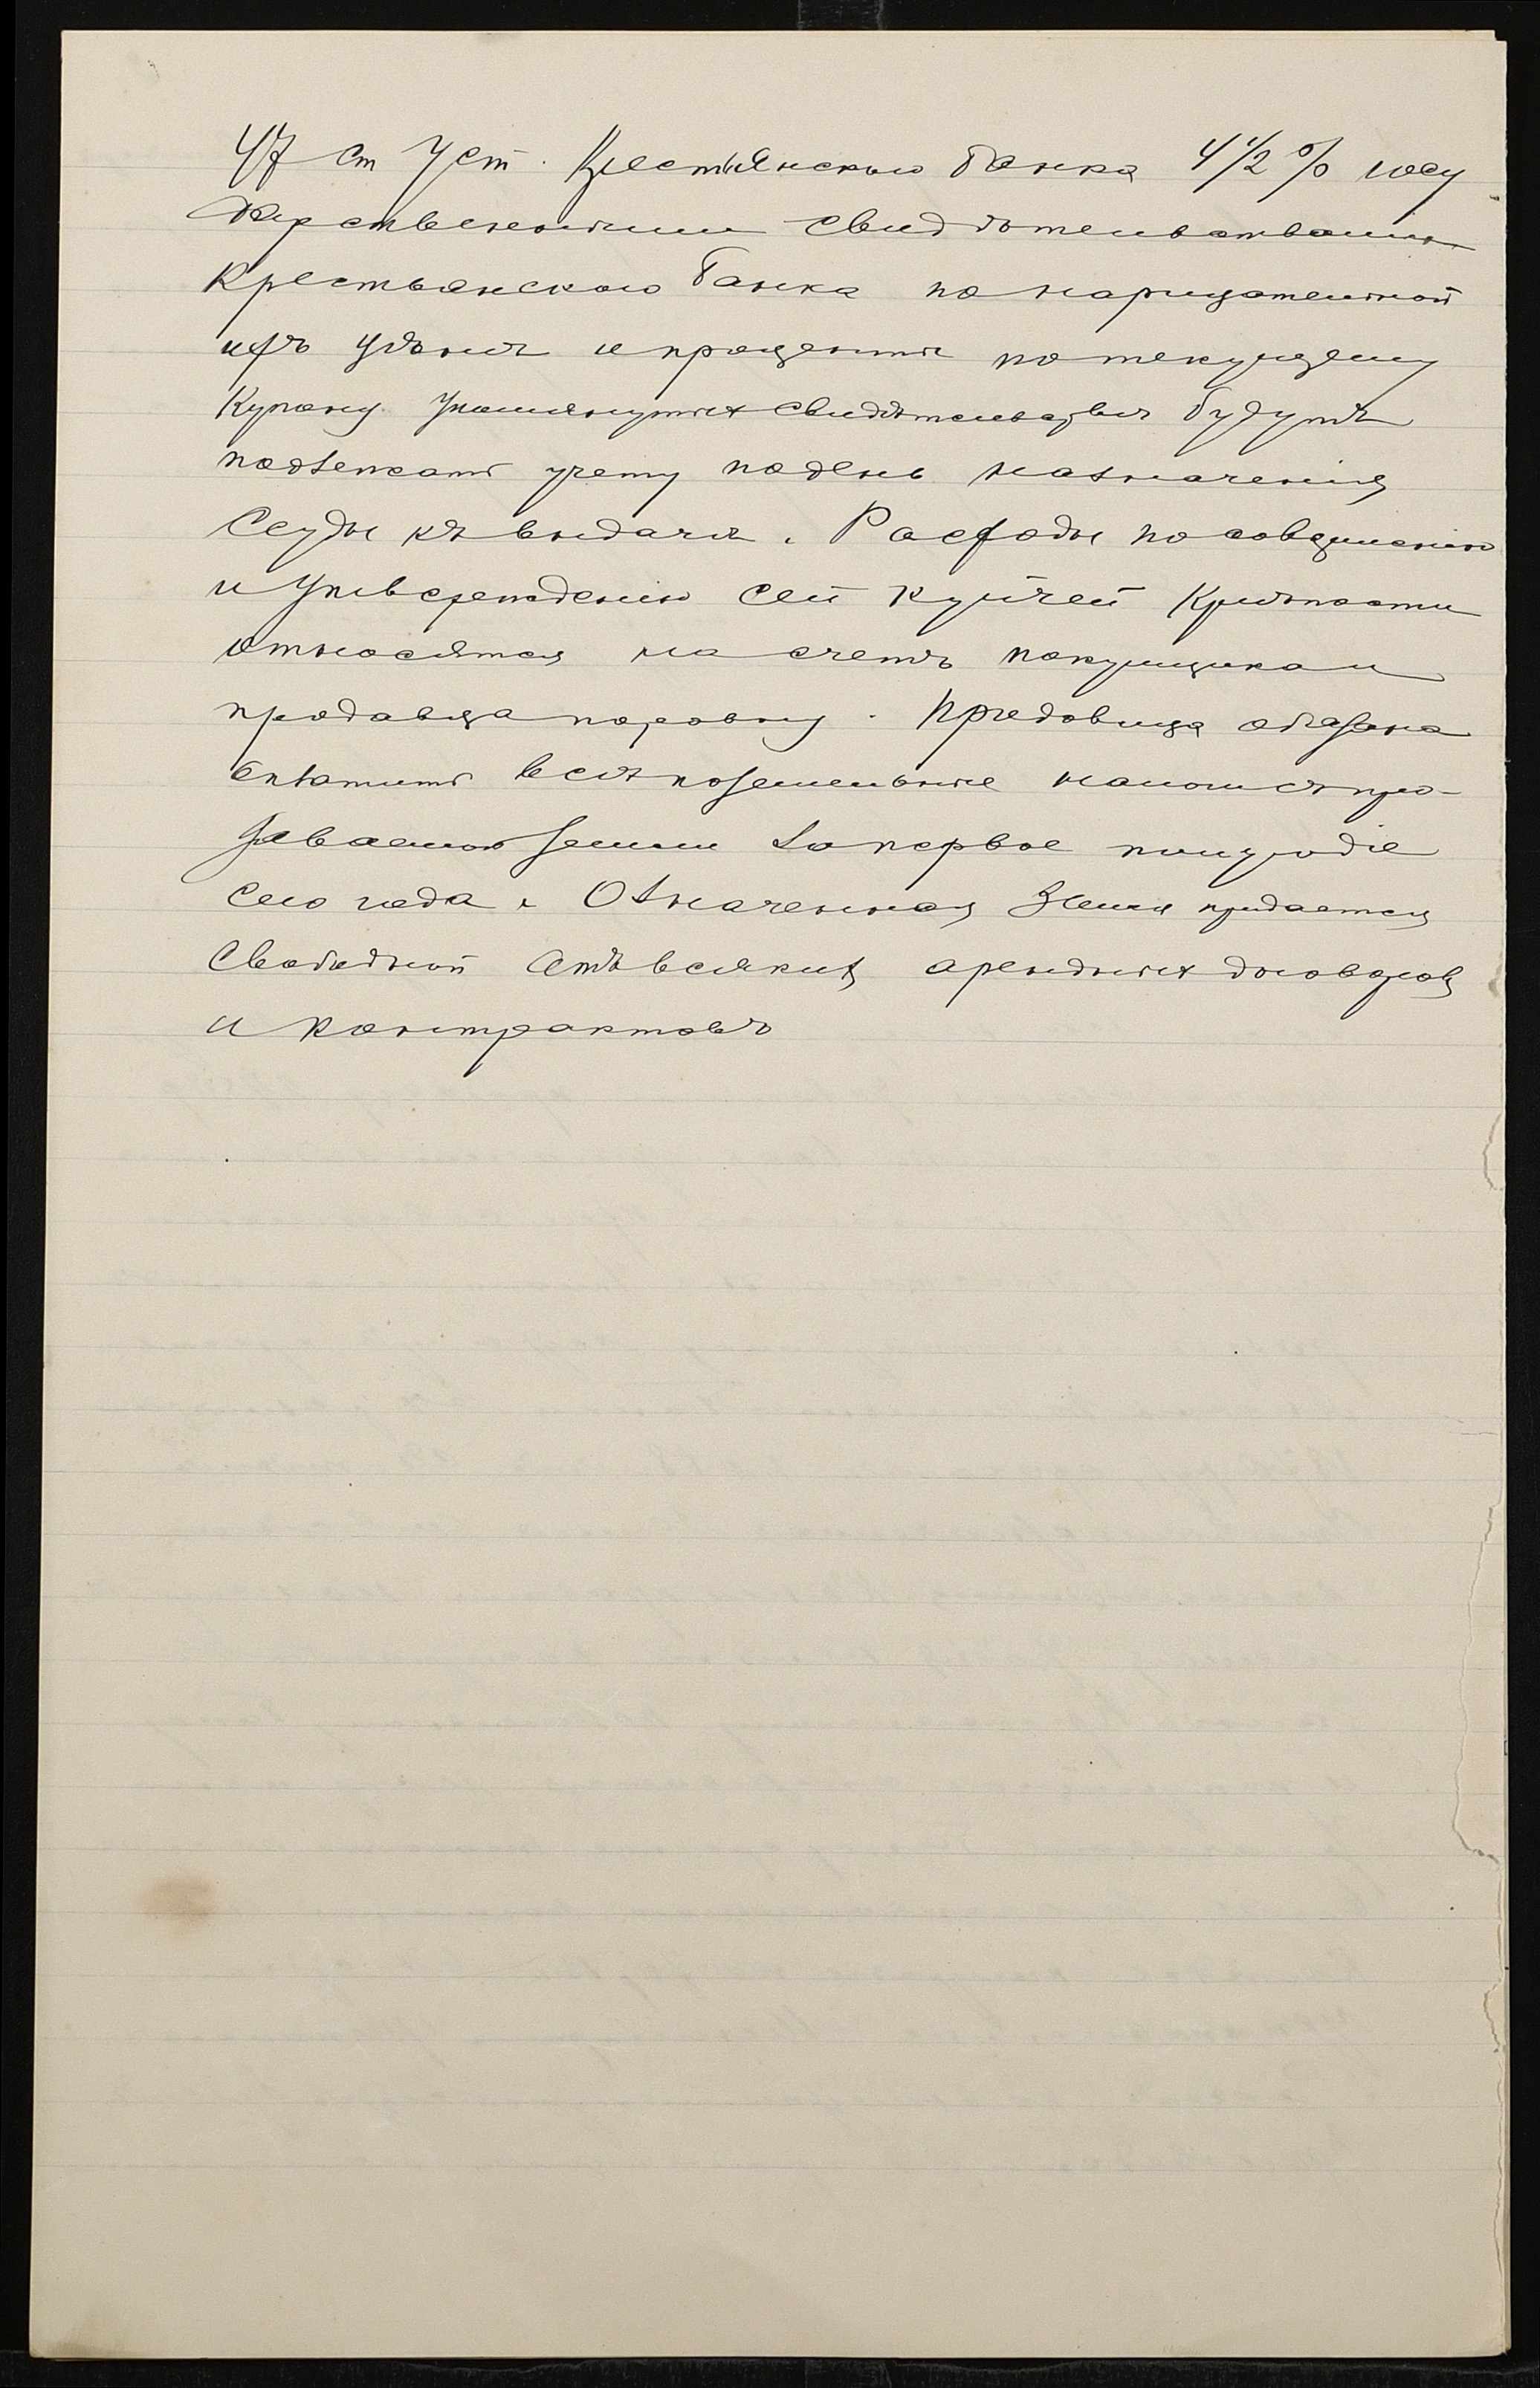 47 ст Уст. Крестьянскаго банка 4 1/2 % госу
дарственными свидѣтельствами
Крестьянскаго Банка по нарицательной
ихъ цѣнѣ и проценты по текущему
Купону упомянутыхъ свидѣтельствъ будутъ
подлежать учету по день назначенія
Ссуды къ выдачѣ. Расходы по совершенію
и утвержденію сей купчей Крѣпости
относятся на счетъ покупщика и
продавца поровну. Продавица обязана
оплатить всѣ поземельные налоги съ про-
даваемой земли за первое полугодіе
сего года. Означенная Земля продается
Свободной отъ всякихъ арендныхъ договоровъ
и контрактовъ